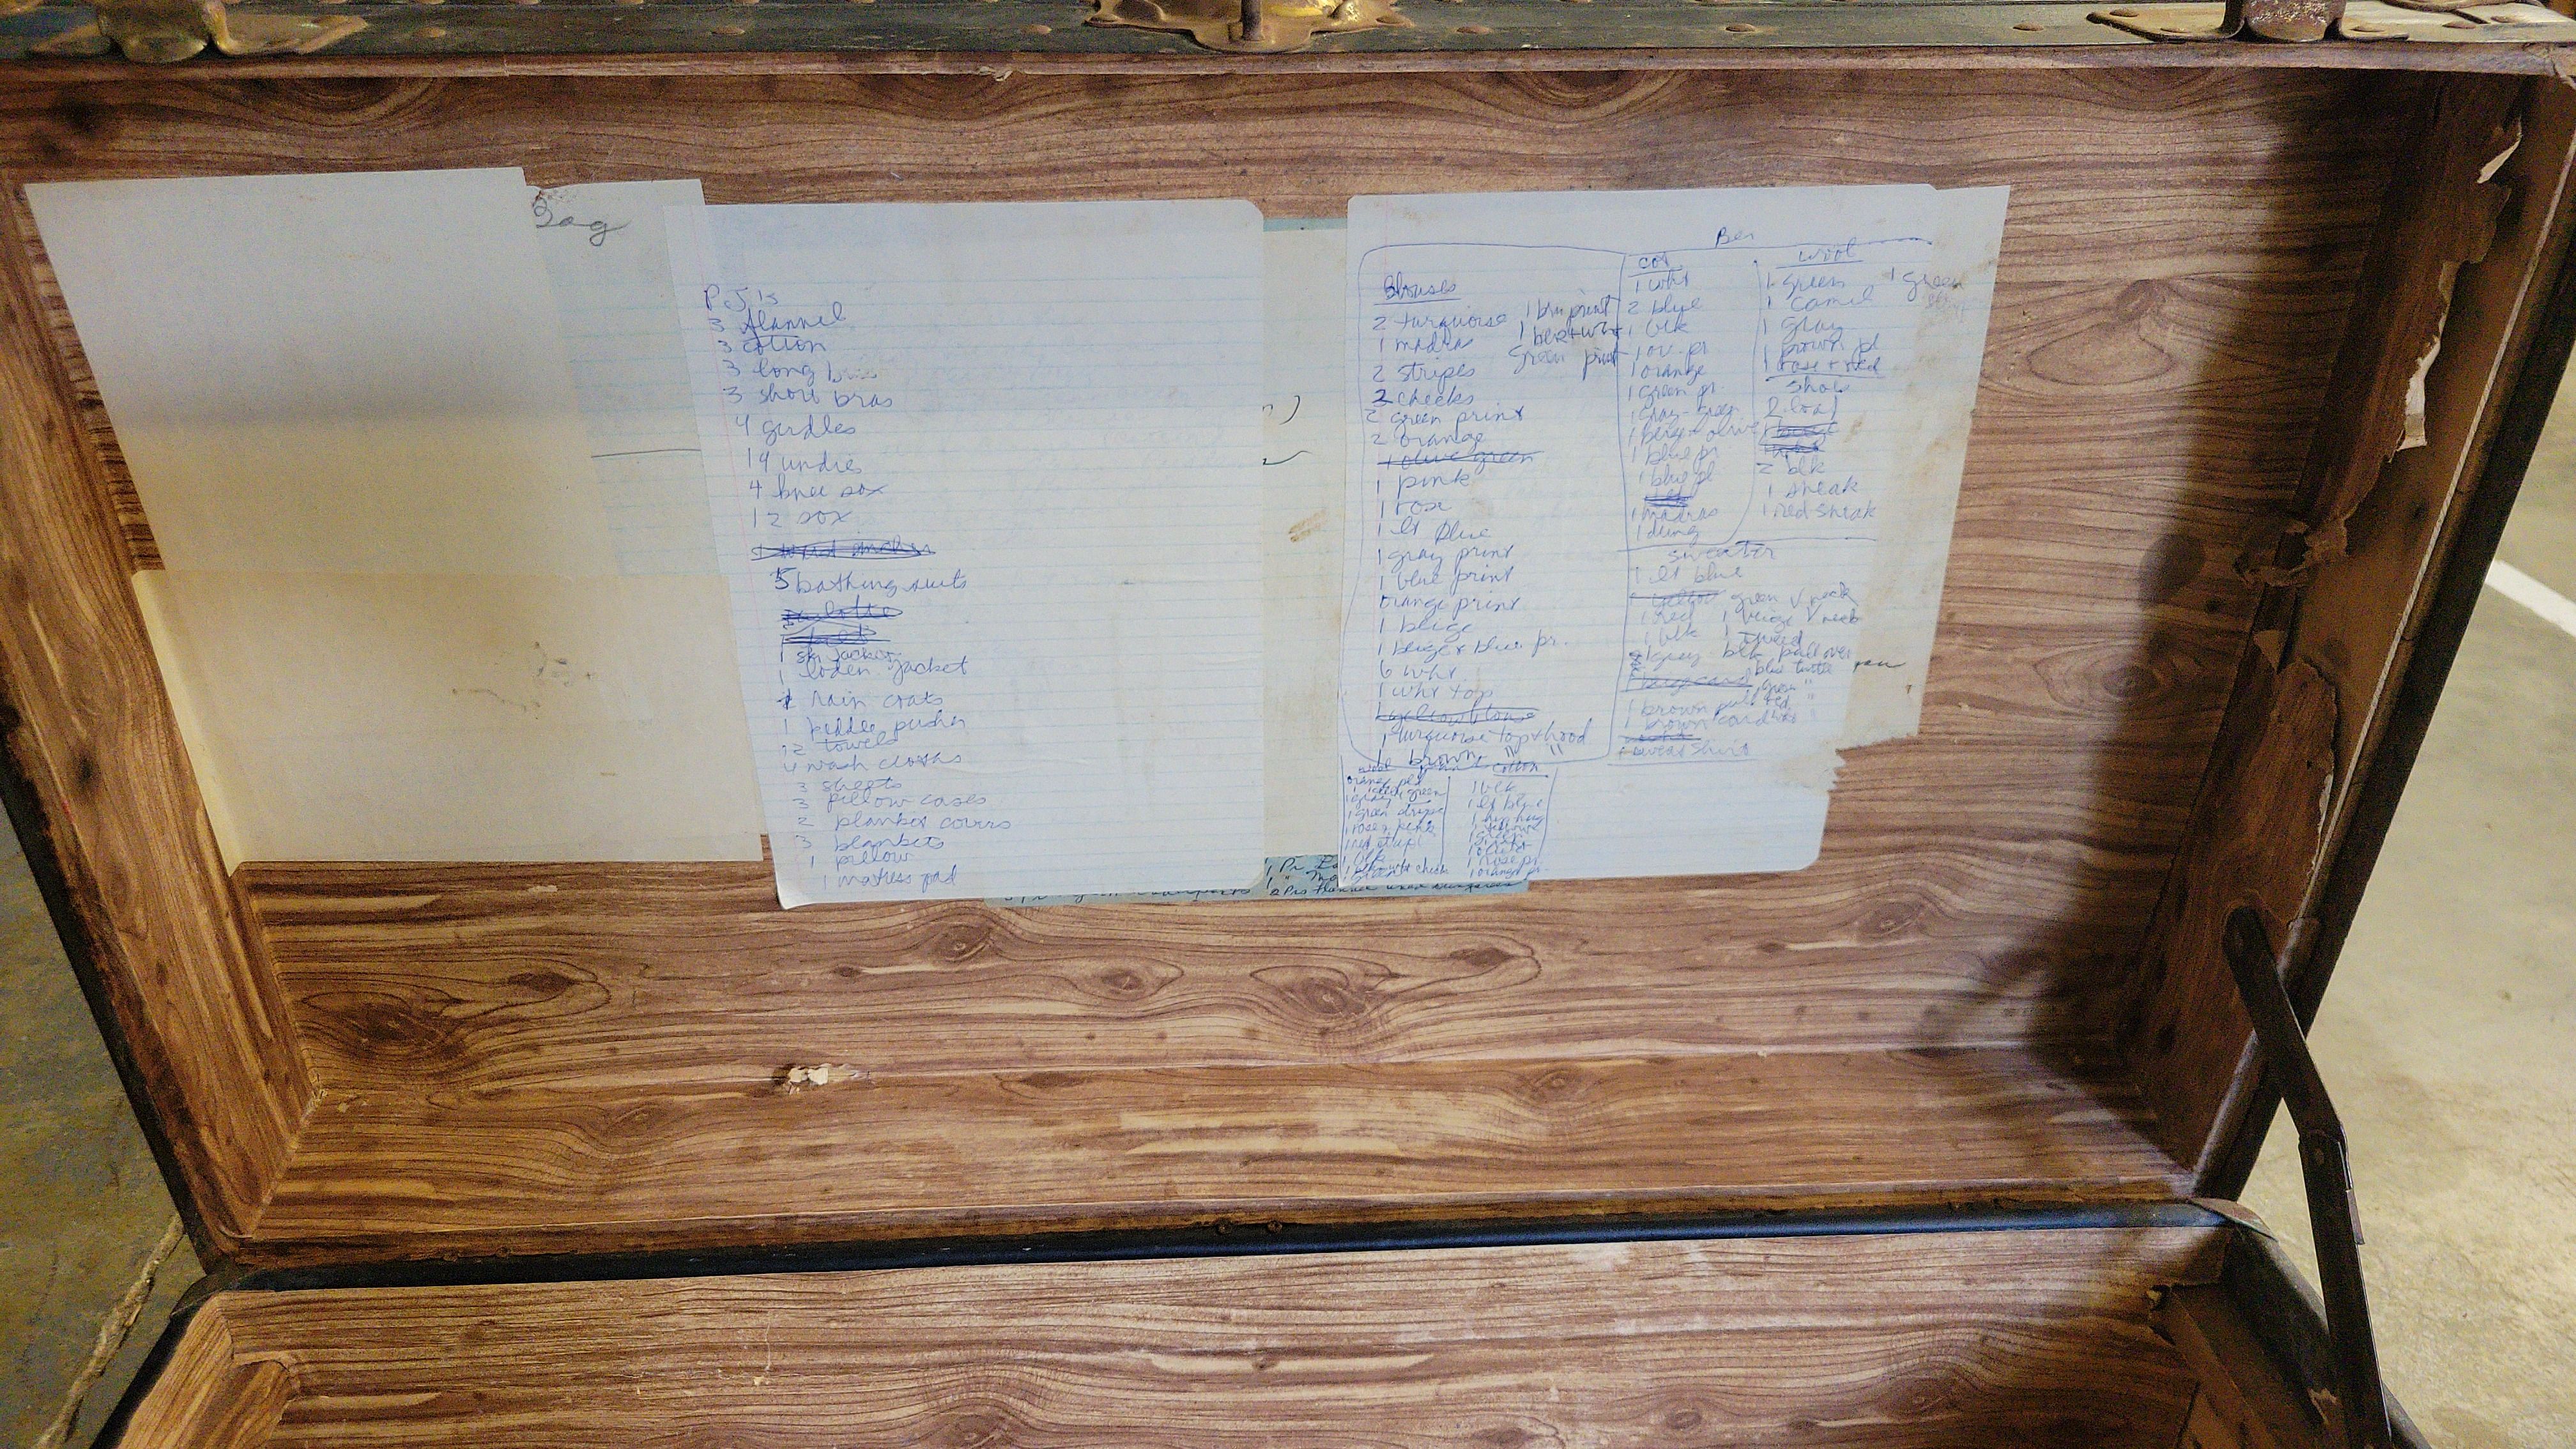 Bag
P.J's
3 flannel
3 cotton
3 long bras
3 short bras
4 girdles
14 undies
4 knee sox
12 sox
5 bathing suits
1 ski jacket
1 loden jacket
rain coats
1 peddle pusher
12 towels
4 wash cloths
3 sheets
3 pillow cases
2 blanket covers
3 blankets
1 pillow
1 matress pad
Blouses
2 turquoise 1 blu print
1 madras 1 blue + wht
2 stripes Green print
2 checks
2 green print
2 orange
1 olive green
1 pink
1 rose
1 lt blue
1 gray print
1 blue print
orange print
1 beige
1 beige + blue pr.
6 wht
1 wht top
1 yellow blouse
1 turquoise top + hood
1 brown " "
Ber
cot
1 wht
2 blue
1 blk
1 orange
1 green pr.
1 gray-green
1 beige + olive
1 blue pr
1 blue pl
1 madras
1 dung
wool
1 green 1 green
1 camel
1 gray
1 brown pl
1 rose + red
shoes
2 loaf
2 blk
1 sneak
1 red sneak
sweater
1 lt blue
1 yellow green V neck
1 red 1 beige V neck
1 blk 1 tweed
1 gray blk pull over
blue turtle
green "
1 brown pull red
1 brown card
sweat shirt
wool
orange pl
1 green stripe
1 rose + pink
1 blk
cotton
1 blk
1 lt blue
1 hip hug
1 yellow
1 green
1 rose pr.
1 orange pr.
1 Pr
2 Prs flannel